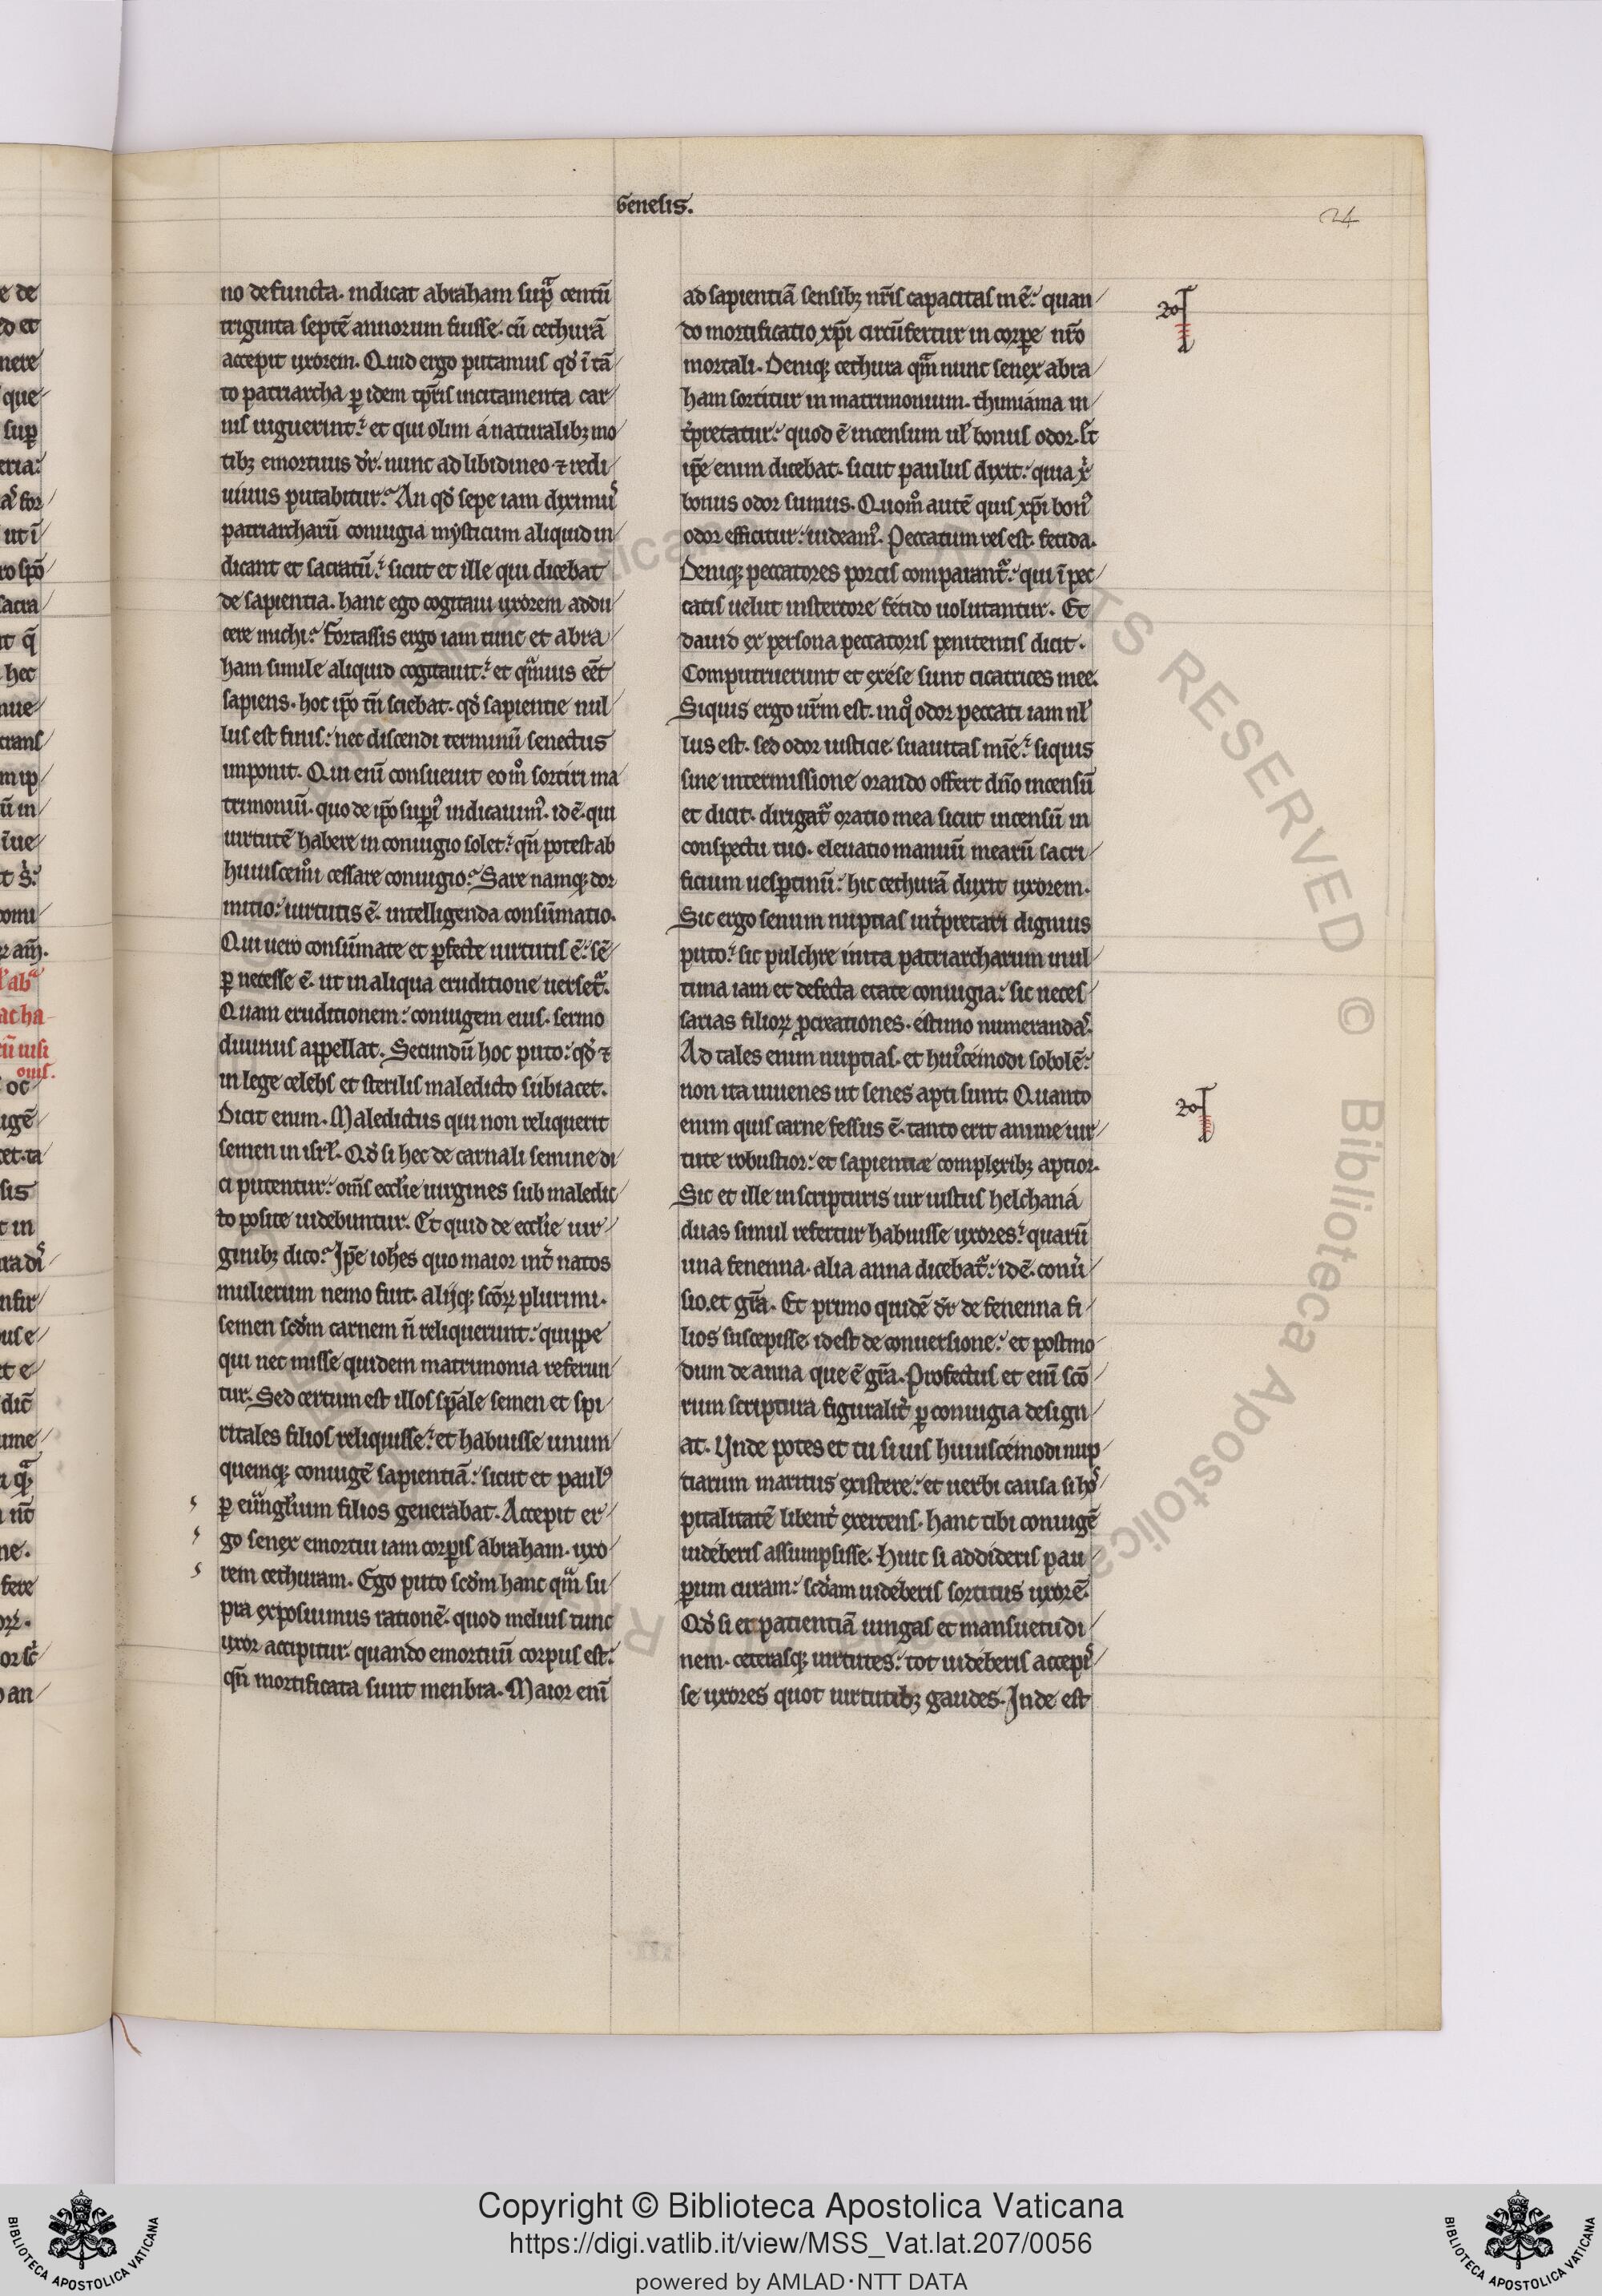 Genesis.
24
no defuncta. indicat abraham sup̄ᵃ centū
triginta septē annorum fuisse. cū cethurā
accepit uxorem. Quid ergo putamus qđ ī tā
to patriarcha ꝑ idem tp̄ris incitamenta car
nis uiguerint: et qui olim á naturalibꝫ mo
tibꝫ emortuus dr̄. nunc ad libidineo ⁊ redi
uiuus putabitur: An qđ sepe iam diximꝰ
patriarcharū coniugia mysticum aliquid in
dicant et sacratū: sicut et ille qui dicebat
de sapientia. hanc ego cogitaui uxorem addu
cere michi: fortassis ergo iam tunc et abra
ham simile aliquid cogitauit: et qᵃmuis eēt
sapiens. hoc ip̄o tn̄ sciebat. qđ sapientie nul
lus est finis: nec discendi terminū senectus
imponit. Qui enī consueuit eom̊ sortiri ma
trimoniū. quo de ip̄o supīꝰ indicauimꝰ. idē. qui
uirtutē habere in coniugio solet: qn̄ potest ab
huiuscem̊i cessare coniugio: Sare namqꝫ dor
mitio: uirtutis ē. intelligenda consūmatio.
Qui uero consūmate et ꝑfecte uirtutis ē: sē
ꝑ necesse ē. ut in aliqua eruditione uersetᷣ.
Quam eruditionem: coniugem eius. sermo
diuinus appellat. Secundū hoc puto: qđ ⁊
in lege celebs et sterilis maledicto subiacet.
Dicit enim. Maledictus qui non reliquerit
semen in isrl̄. Qđ si hec de carnali semine di
ci putentur: oms̄ ecclīe uirgines sub maledic
to posite uidebuntur. Et quid de ecclīe uir
ginibꝫ dico: Ip̄e ioh̄es quo maior int̄ natos
mulierum nemo fuit. alijqꝫ sc̄oꝝ plurimi.
semen scđm carnem n̄ reliquerunt: quippe
qui nec inisse quidem matrimonia referun
tur. Sed certum est illos sp̄ale semen et spi
ritales filios reliquisse: et habuisse unum
quemqꝫ coniugē sapientiā: sicut et paulꝰ
ꝑ euᵃngl̄ium filios generabat. Accepit er
go senex emortui iam corꝑis abraham. uxo
rem cethuram. Ego puto scđm hanc qᵃm su
pra exposuimus rationē. quod melius tunc
uxor accipitur. quando emortuū corpus est:
qn̄ mortificata sunt menbra. Maior enī
ad sapientiā sensibꝫ nr̄is capacitas inē: quan
do mortificatio xp̄i circūfertur in corꝑe nr̄o
mortali. Deniqꝫ cethura qᵃm nunc senex abra
ham sortitur in matrimonium. thimiama in
t̄pretatur: quod ē incensum ul̄ bonus odor. s̄t
ip̄e enim dicebat. sicut paulus dixit: quia x̄
bonus odor sumus. Quom̊ autē quis xp̄i bonꝰ
odor efficitur: uideamꝰ. Peccatum res est. fetida.
Deniqꝫ peccatores porcis comparantᷣ: qui ī pec
catis uelut instercore fetido uolutantur. Et
dauid ex persona peccatoris penitentis dicit.
Computruerunt et exése sunt cicatrices mee.
Siquis ergo ur̄m est. inq̊ odor peccati iam nl̄
lus est. sed odor iusticie. suauitas mīe: siquis
sine intermissione orando offert dn̄o incensū
et dicit. dirigatᷣ oratio mea sicut incensū in
conspectu tuo. eleuatio manuū mearū sacri
ficium uesꝑtinū: hic cethurā duxit uxorem.
Sic ergo senum nuptias int̄pretari dignius
puto: sic pulchre inita patriarcharum inul
tima iam et defecta etate coniugia: sic neces
sarias filioꝝ ꝓcreationes. estimo numerandaˢ.
Ad tales enim nuptias. et huiꝰcémodi sobolē:
non ita iuuenes ut senes apti sunt: Quanto
enim quis carne fessus ē. tanto erit anime uir
tute robustior: et sapientiæ complexibꝫ aptior.
Sic et ille in scripturis uir iustus helchaná
duas simul refertur habuisse uxores: quarū
una fenenna. alia anna dicebatᷣ: idē. conu̾
sio. et gr̄a. Et primo quidē dr̄ de fenenna fi
lios suscepisse. id est de conuersione: et postmo
dum de anna que ē gr̄a. Profectus et enī sc̄o
rum scriptura figuralit̄ ꝑ coniugia design
at. Unde potes et tu si uis huiuscemodi nup
tiarum maritus existere: et uerbi causa si hoˢ
pitalitatē libent̄ exercens. hanc tibi coniugē
uidéberis assumpsisse. Huic si addideris pau
ꝑum curam: scđam uidéberis sortitus uxorē.
Qđ si et patientiā iungas et mansuetudi
nem. ceterasqꝫ uirtutes: tot uidéberis accepiˢ
se uxores quot uirtutibꝫ gaudes. Inde est
Copyright © Biblioteca Apostolica Vaticana
https://digi.vatlib.it/view/MSS_Vat.lat.207/0056
powered by AMLAD·NTT DATA
BIBLIOTECA APOSTOLICA VATICANA
BIBLIOTECA APOSTOLICA VATICANA